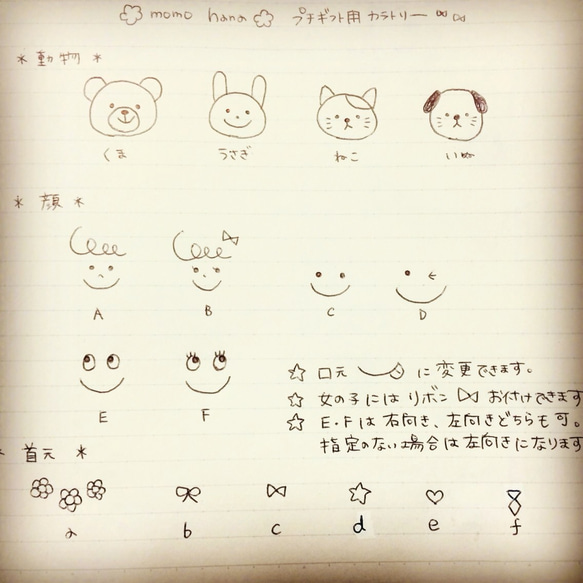 momo hana プチギフト用 カラトリー
* 動物 *
くま うさぎ ねこ いぬ
* 顔 *
A B C D
E F
☆ 口元 に変更できます。
☆ 女の子には リボン お付けできます
☆ E・Fは 右向き、左向きどちらも可。
指定のない場合は左向きになります
* 首元 *
a b c d e f